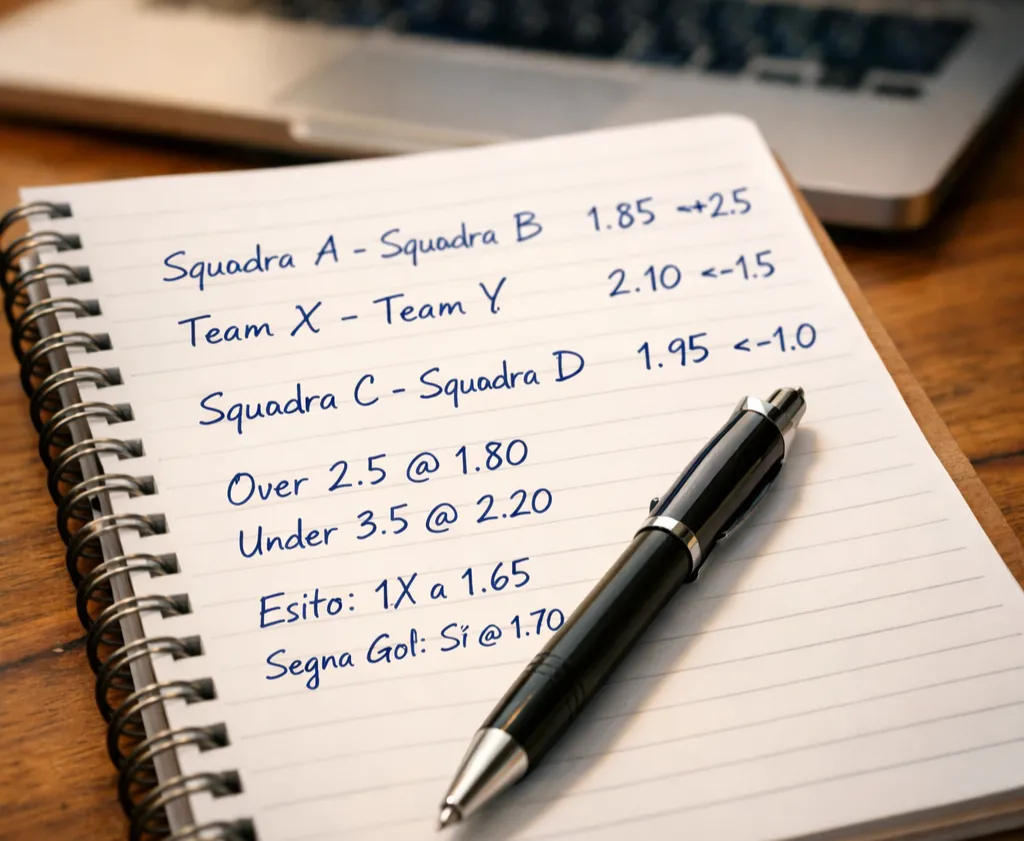 Squadra A - Squadra B 1.85 →+2.5
Team X - Team Y 2.10 <-1.5
Squadra C - Squadra D 1.95 <-1.0
Over 2.5 @ 1.80
Under 3.5 @ 2.20
Esito: 1X a 1.65
Segna Gol: Sí @ 1.70